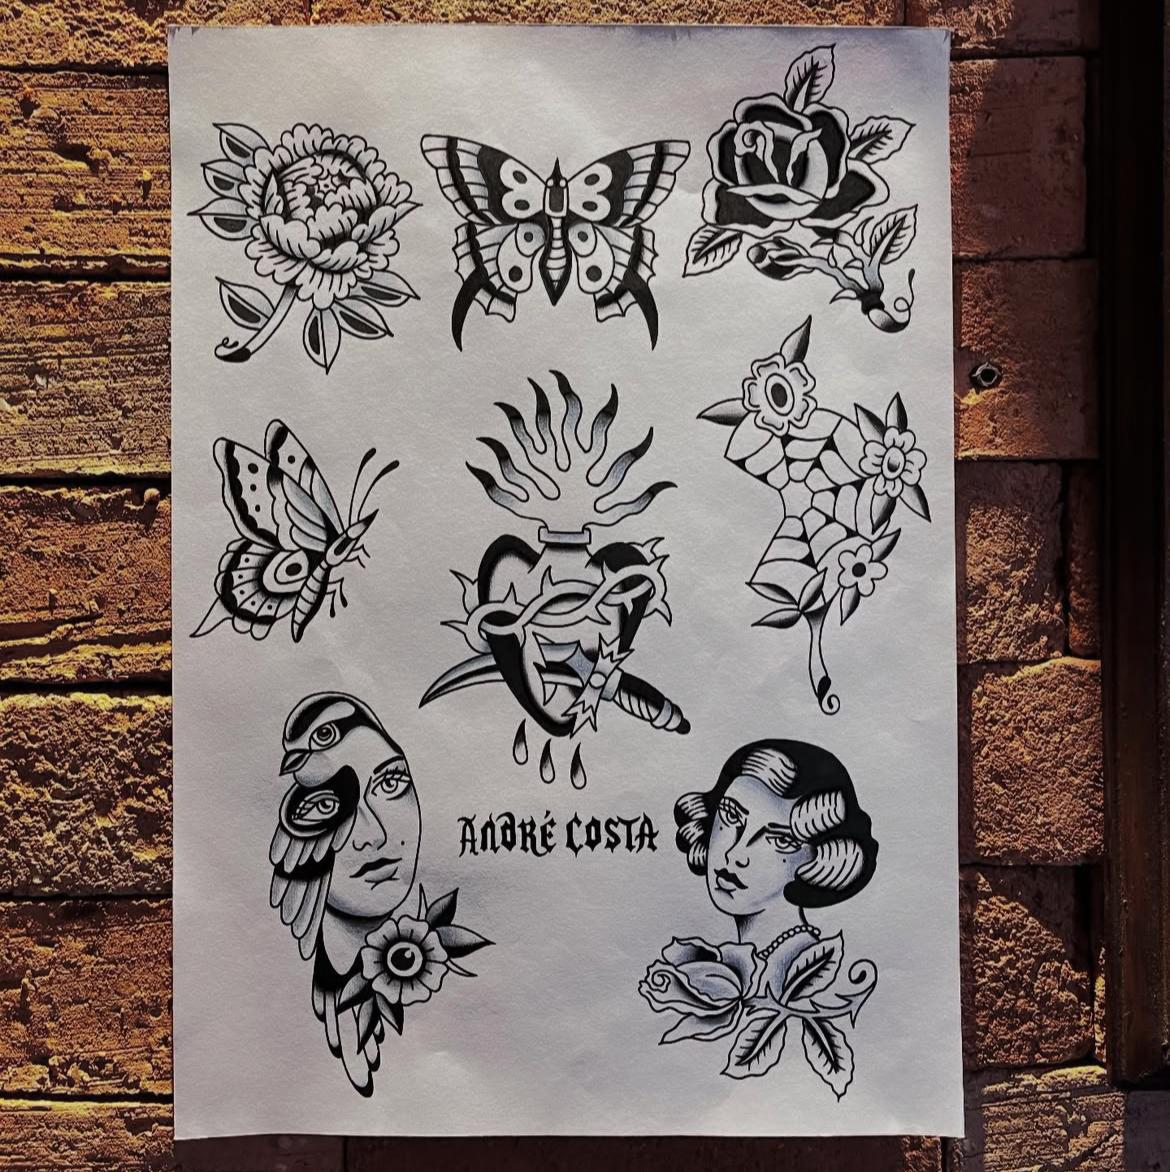 ANDRÉ COSTA